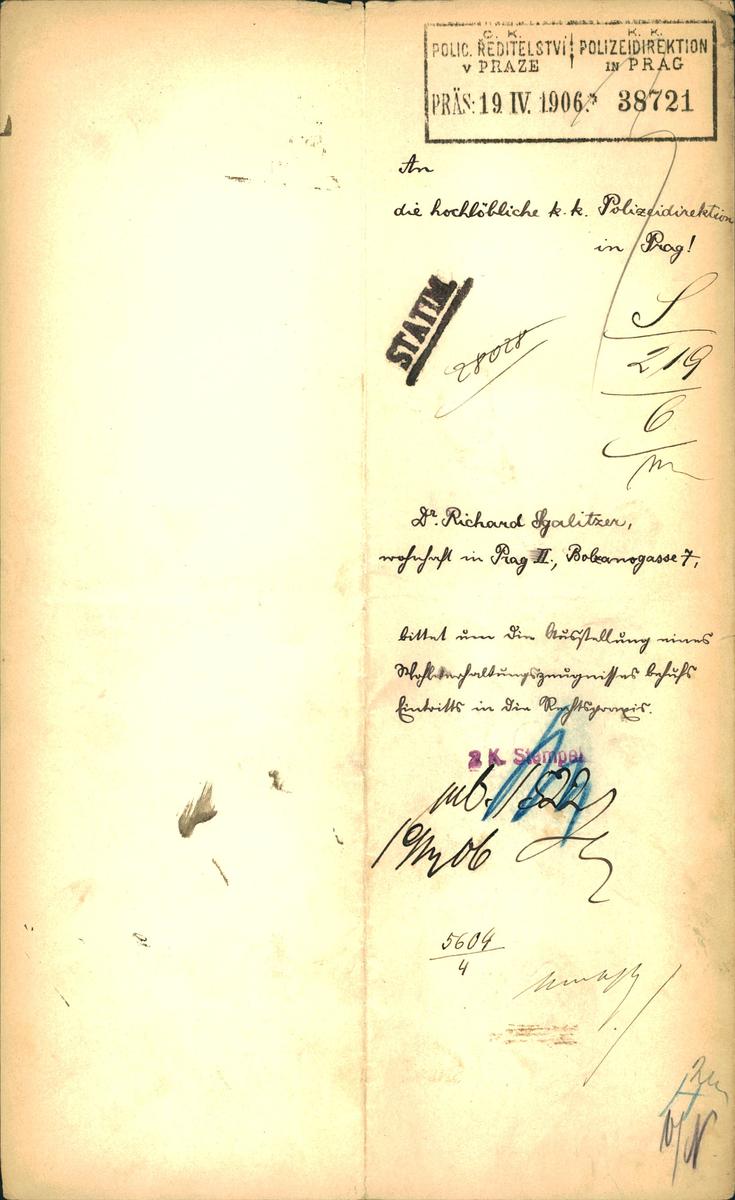 C. K. K. K.
POLIC. ŘEDITELSTVÍ POLIZEIDIREKTION
v PRAZE IN PRAG
PRÄS: 19. IV. 1906.* 38721
An
die hochlöbliche k. k. Polizeidirektion
in Prag!
STATIM
28028
S
219
6
m
Dr. Richard Sgalitzer,
wohnhaft in Prag II., Bolzanogasse 7,
bittet um die Ausstellung eines
Wohlverhaltungszeugnisses behufs
Eintritts in die Rechtspraxis.
2 K. Stempel
1822
5604
4